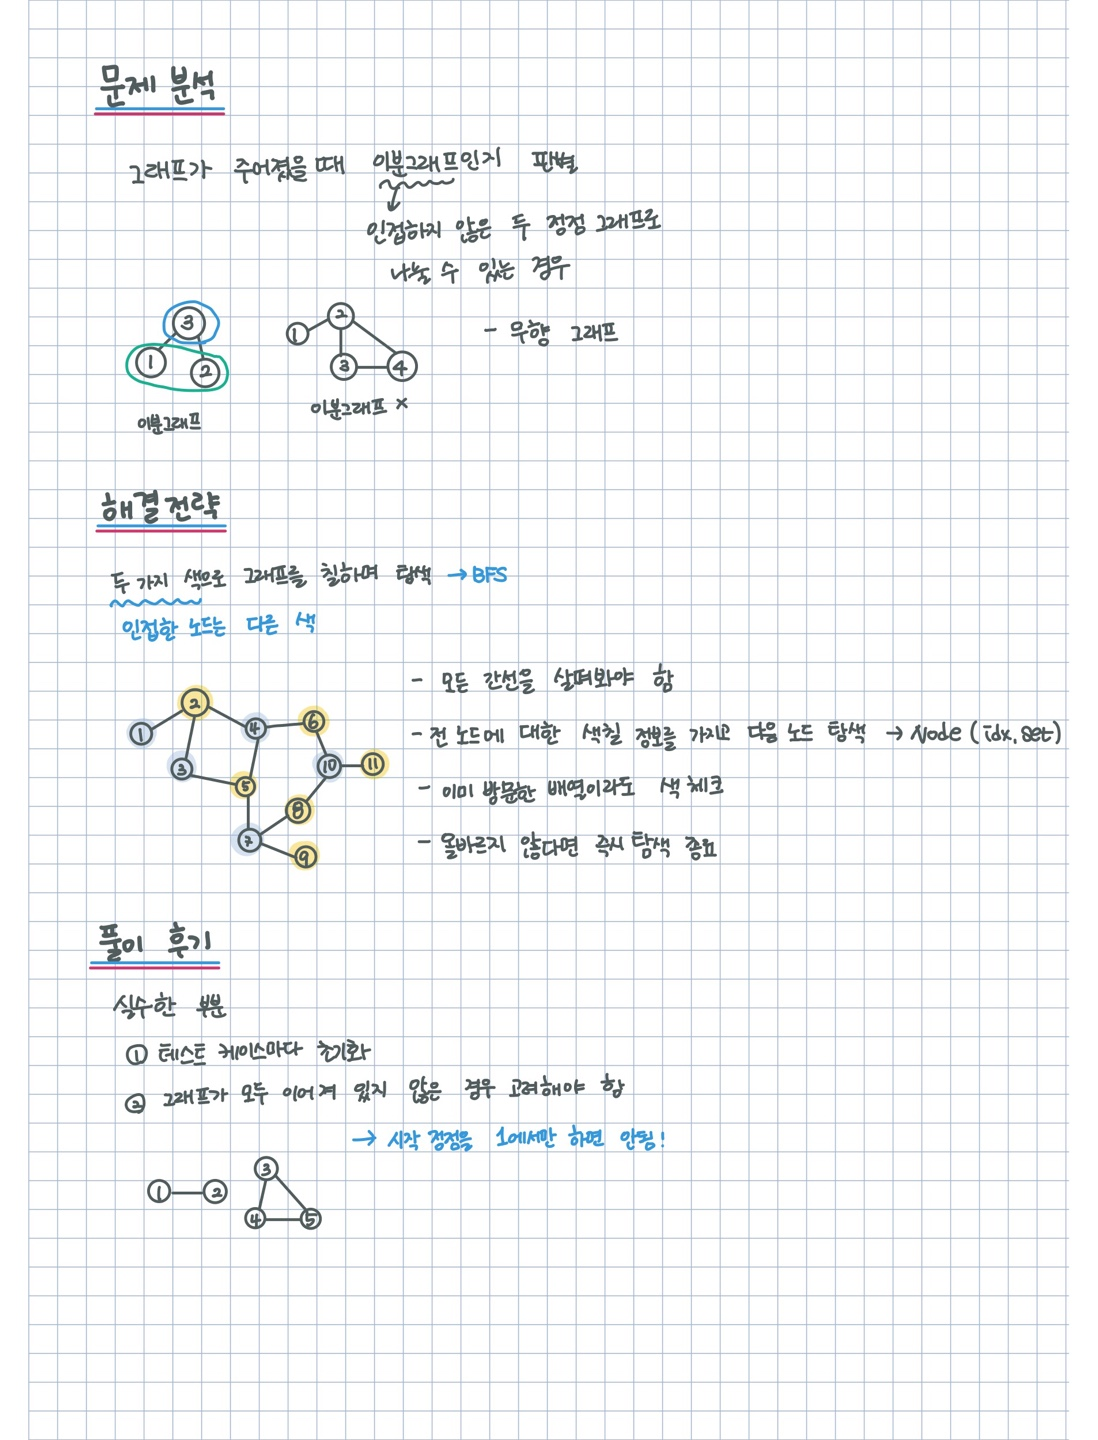 문제 분석
그래프가 주어졌을 때 이분그래프인지 판별
인접하지 않은 두 정점 그래프로
나눌 수 있는 경우
3
1 2
이분그래프
1 2
3 4
이분그래프 ×
- 무향 그래프
해결전략
두 가지 색으로 그래프를 칠하며 탐색 → BFS
인접한 노드는 다른 색
1 2 3 4 5 6 7 8 9 10 11
- 모든 간선을 살펴봐야 함
- 전 노드에 대한 색칠 정보를 가지고 다음 노드 탐색 → Node (idx, set)
- 이미 방문한 배열이라도 색 체크
- 올바르지 않다면 즉시 탐색 종료
풀이 후기
실수한 부분
① 테스트 케이스마다 초기화
② 그래프가 모두 이어져 있지 않은 경우 고려해야 함
→ 시작 정점을 1에서만 하면 안됨!
1 2
3
4 5